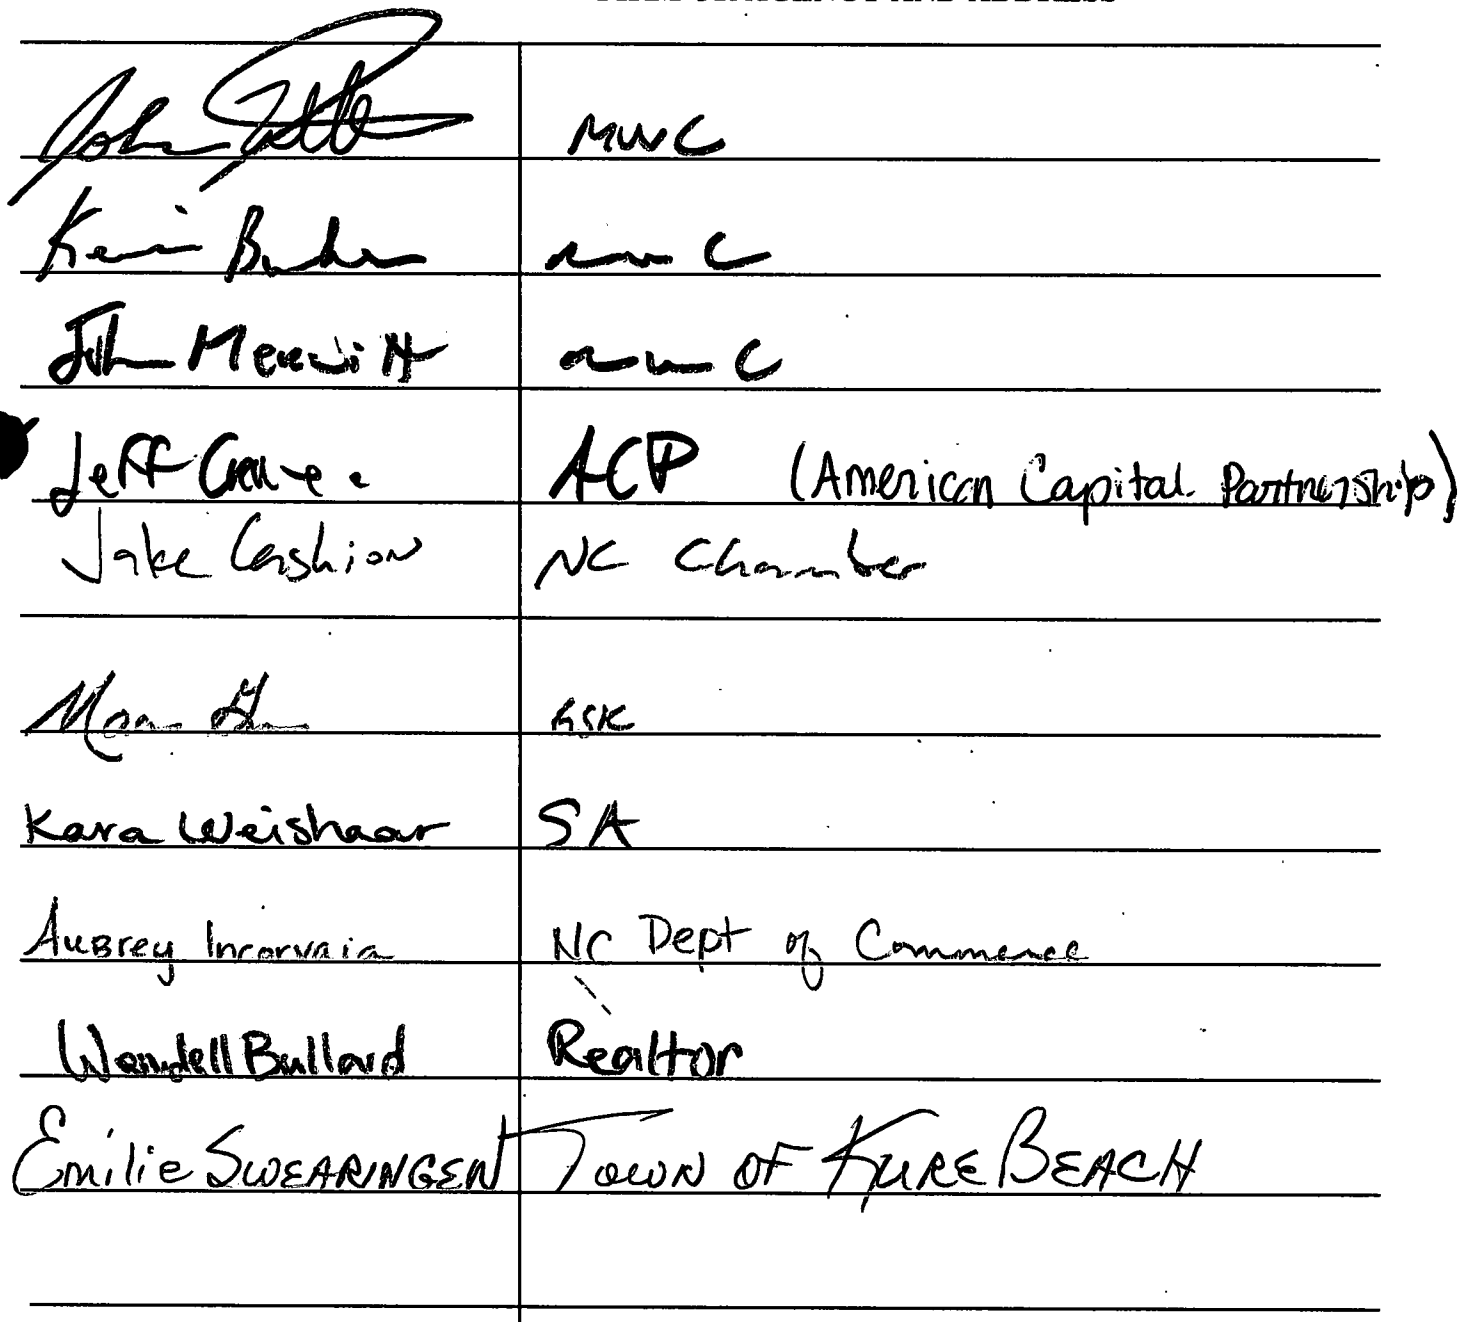 FIRM OR AGENCY AND ADDRESS
John MWC
Kevin
John Merritt C
Jeff ACP (American Capital Partnership)
Jake Cashion NC Chamber
GSK
Kara Weishaar SA
Aubrey Incorvaia NC Dept of Commerce
Wendell Bullard Realtor
Emilie SWEARINGEN TOWN OF KURE BEACH